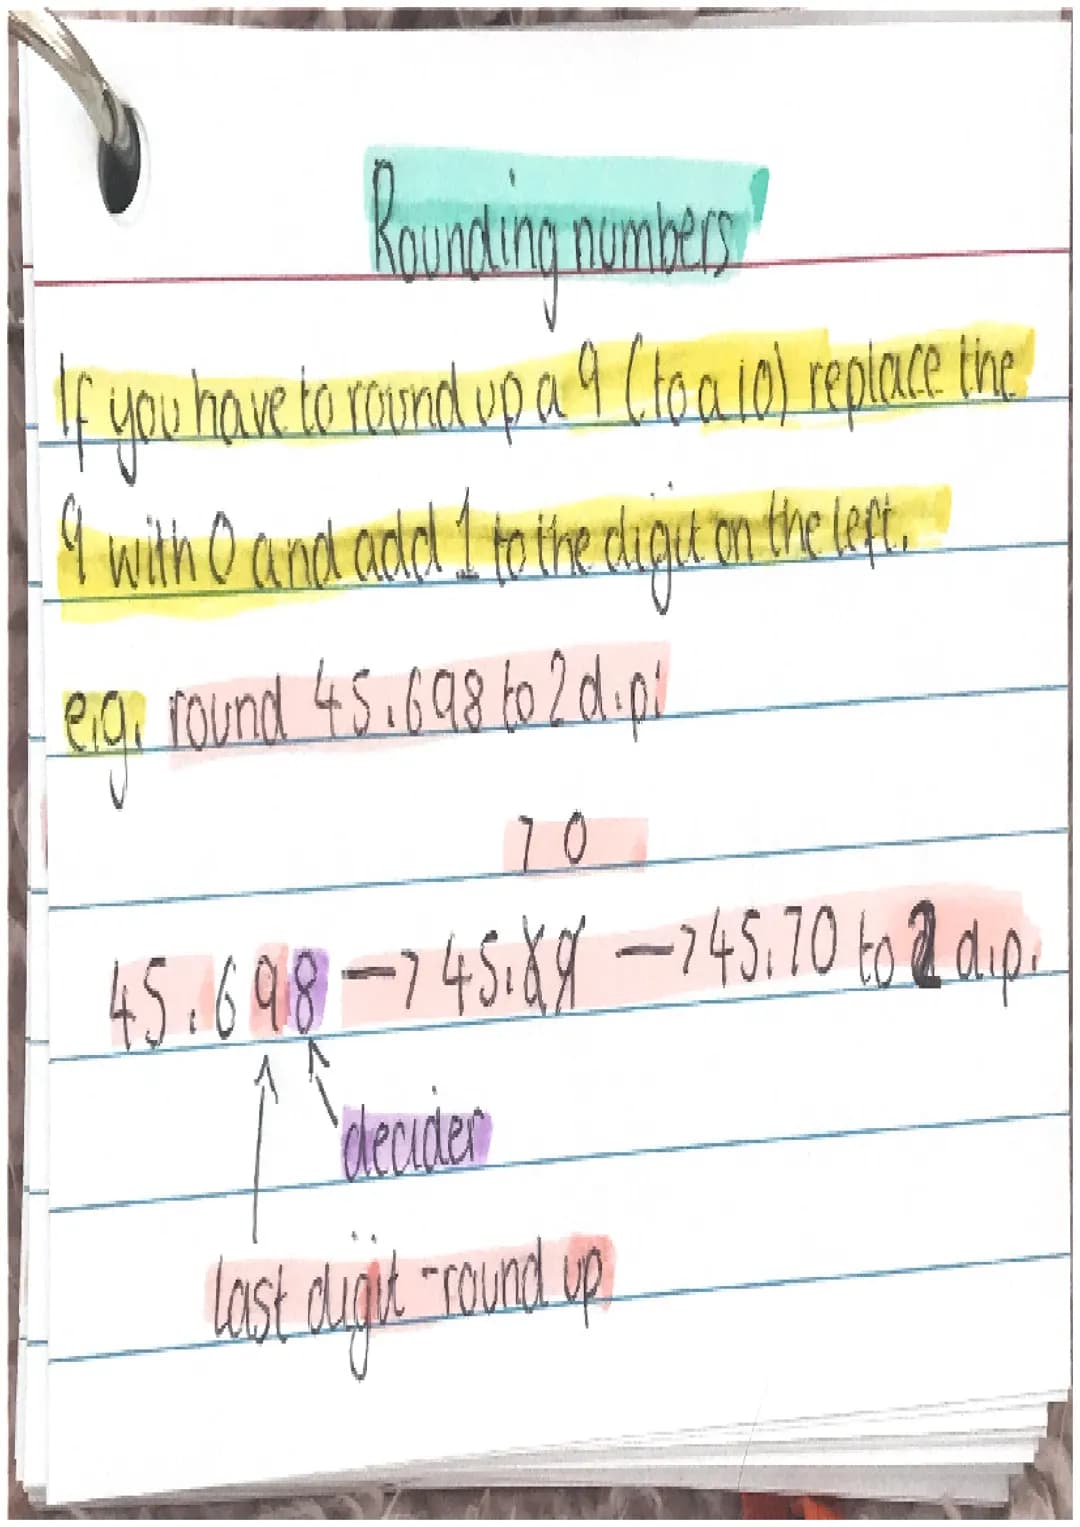 Rounding numbers
If you have to round up a 9 (to a 10) replace the
9 with 0 and add 1 to the digit on the left.
e.g. round 45.698 to 2 d.p:
7 0
45.698 → 45.69 → 45.70 to 2 d.p.
decider
last digit - round up